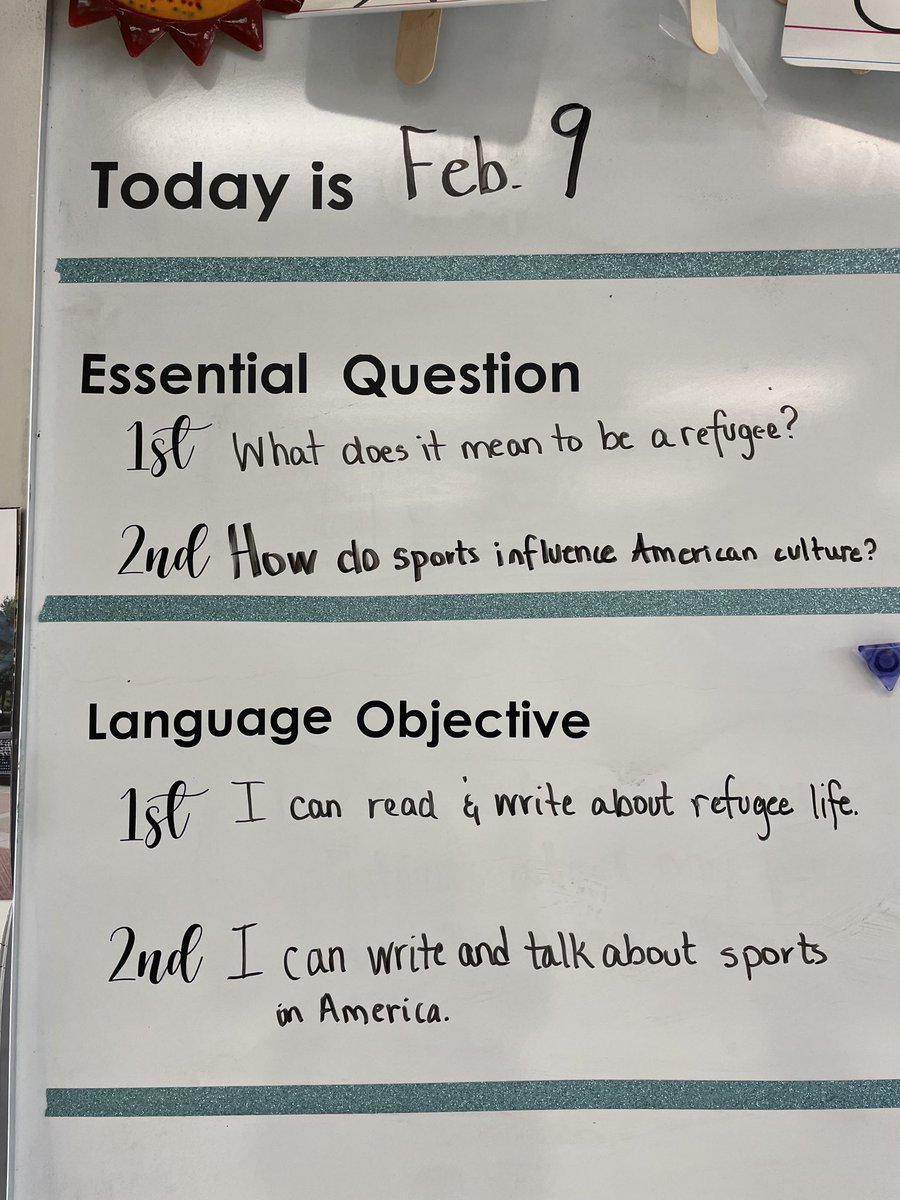 Today is Feb. 9
Essential Question
1st What does it mean to be a refugee?
2nd How do sports influence American culture?
Language Objective
1st I can read & write about refugee life.
2nd I can write and talk about sports
in America.